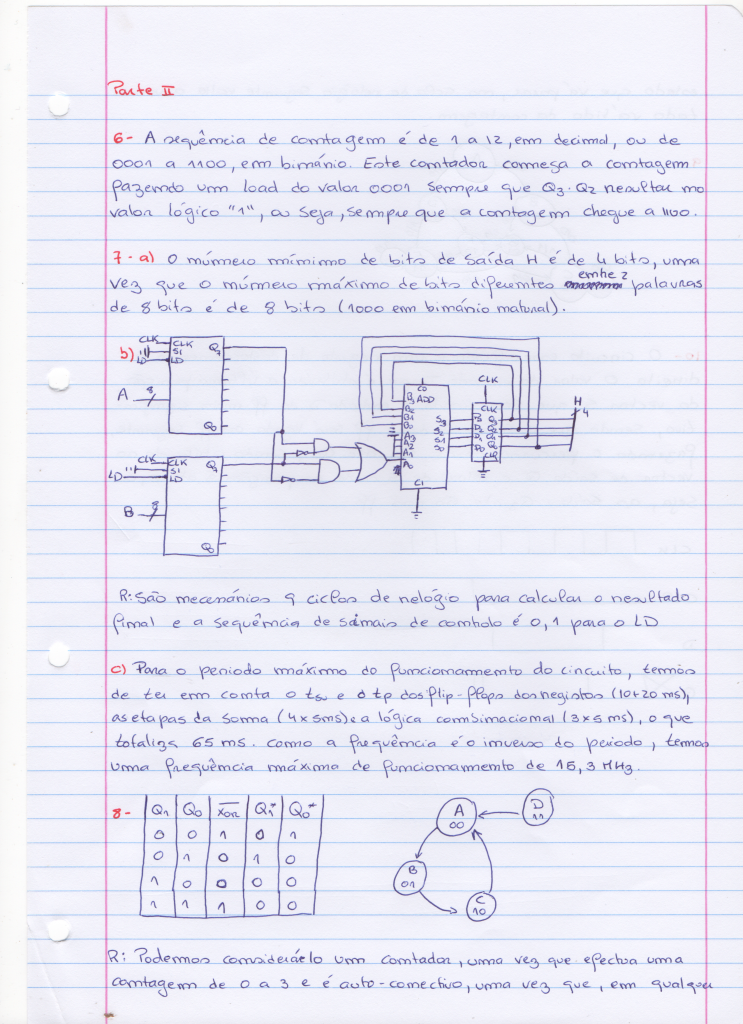 Parte II
6- A sequência de contagem é de 1 a 12, em decimal, ou de
0001 a 1100, em binário. Este contador começa a contagem
fazendo um load do valor 0001 sempre que Q3·Q2 resultar no
valor lógico "1", ou seja, sempre que a contagem chegue a 1100.
7- a) O número mínimo de bits de saída H é de 4 bits, uma
vez que o número máximo de bits diferentes entre 2 palavras
de 8 bits é de 8 bits (1000 em binário natural).
b)
CLK CLK Q7
S1
LD LD
A 8
Q0
CLK CLK Q7
S1
LD LD
B 8
Q0
C0
B3 ADD
B2
B1
B0
A3
A2
A1
A0
S3
S2
S1
S0
C1
CLK
CLK
D3 Q3
D2 Q2
D1 Q1
D0 Q0
CLR
H
4
R: São necessários 9 ciclos de relógio para calcular o resultado
final e a sequência de sinais de controlo é 0,1 para o LD
c) Para o período máximo do funcionamento do circuito, temos
de ter em conta o tsu e o tp dos flip-flops dos registos (10+20 ns),
as etapas da soma (4x5ns) e a lógica combinacional (3x5 ns), o que
totaliza 65 ns. Como a frequência é o inverso do período, temos
uma frequência máxima de funcionamento de 15,3 MHz.
8- Q1 Q0 XOR Q1* Q0*
0 0 1 0 1
0 1 0 1 0
1 0 0 0 0
1 1 1 0 0
A
00
D
11
B
01
C
10
R: Podemos considerá-lo um contador, uma vez que efectua uma
contagem de 0 a 3 e é auto-correctivo, uma vez que, em qualquer